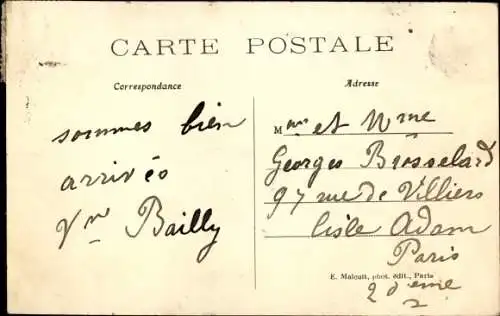 CARTE POSTALE
Correspondance
Adresse
sommes bien
arrivés
Vve Bailly
Mr et Mme
Georges Brosselard
97 rue de Villiers
l'isle Adam
Paris
E. Malcuit, phot. édit., Paris
2 d ème